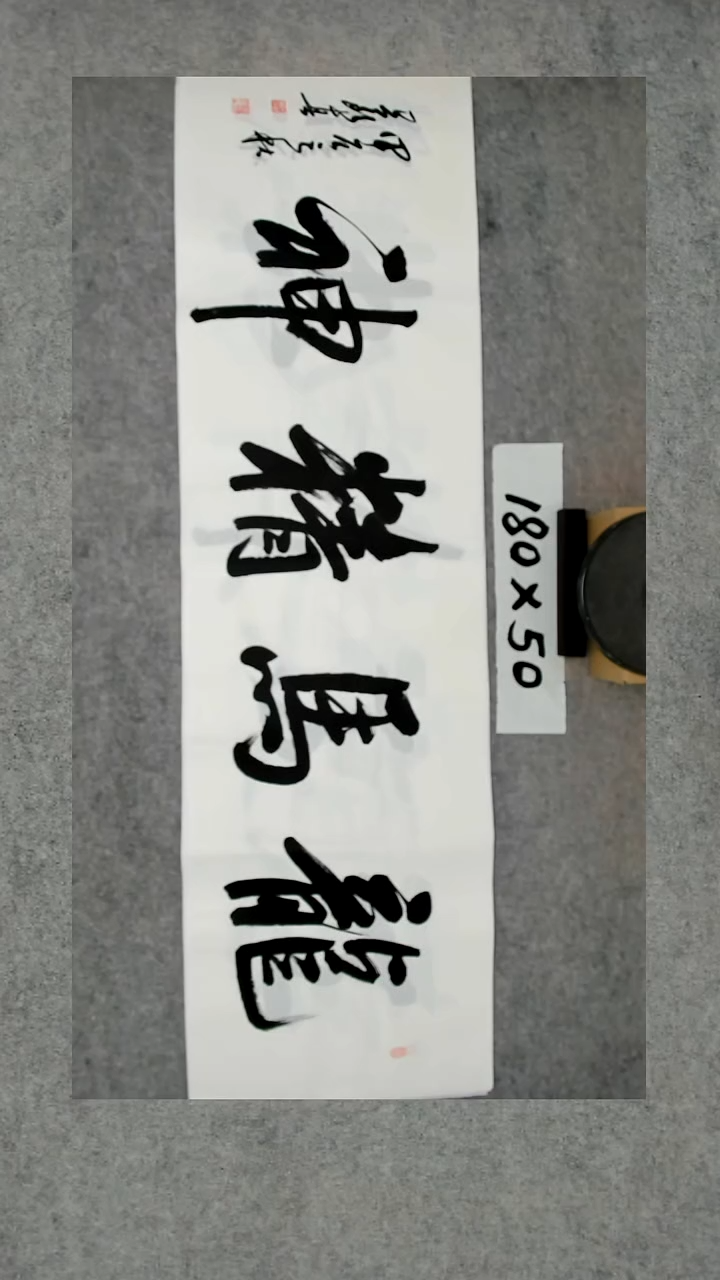 龍馬精神
180×50